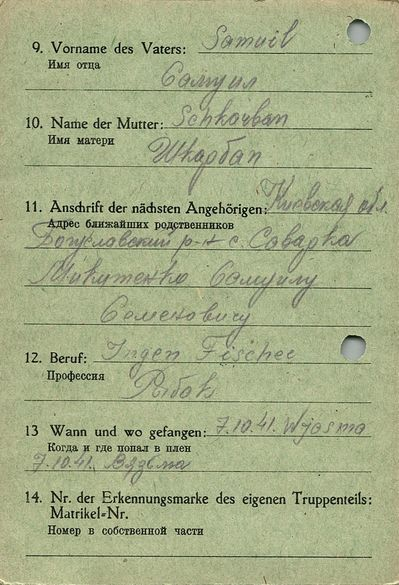 9. Vorname des Vaters: Samuil
Имя отца
Самуил
10. Name der Mutter: Schkarban
Имя матери
Шкарбан
11. Anschrift der nächsten Angehörigen: Киевская обл.
Адрес ближайших родственников
Богуславский р-н с. Саварка
Микитенко Самуилу
Семеновичу
12. Beruf: Fischer
Профессия
Рыбак
13 Wann und wo gefangen: 7.10.41. Wjasma
Когда и где попал в плен
7.10.41. Вязьма
14. Nr. der Erkennungsmarke des eigenen Truppenteils:
Matrikel-Nr.
Номер в собственной части